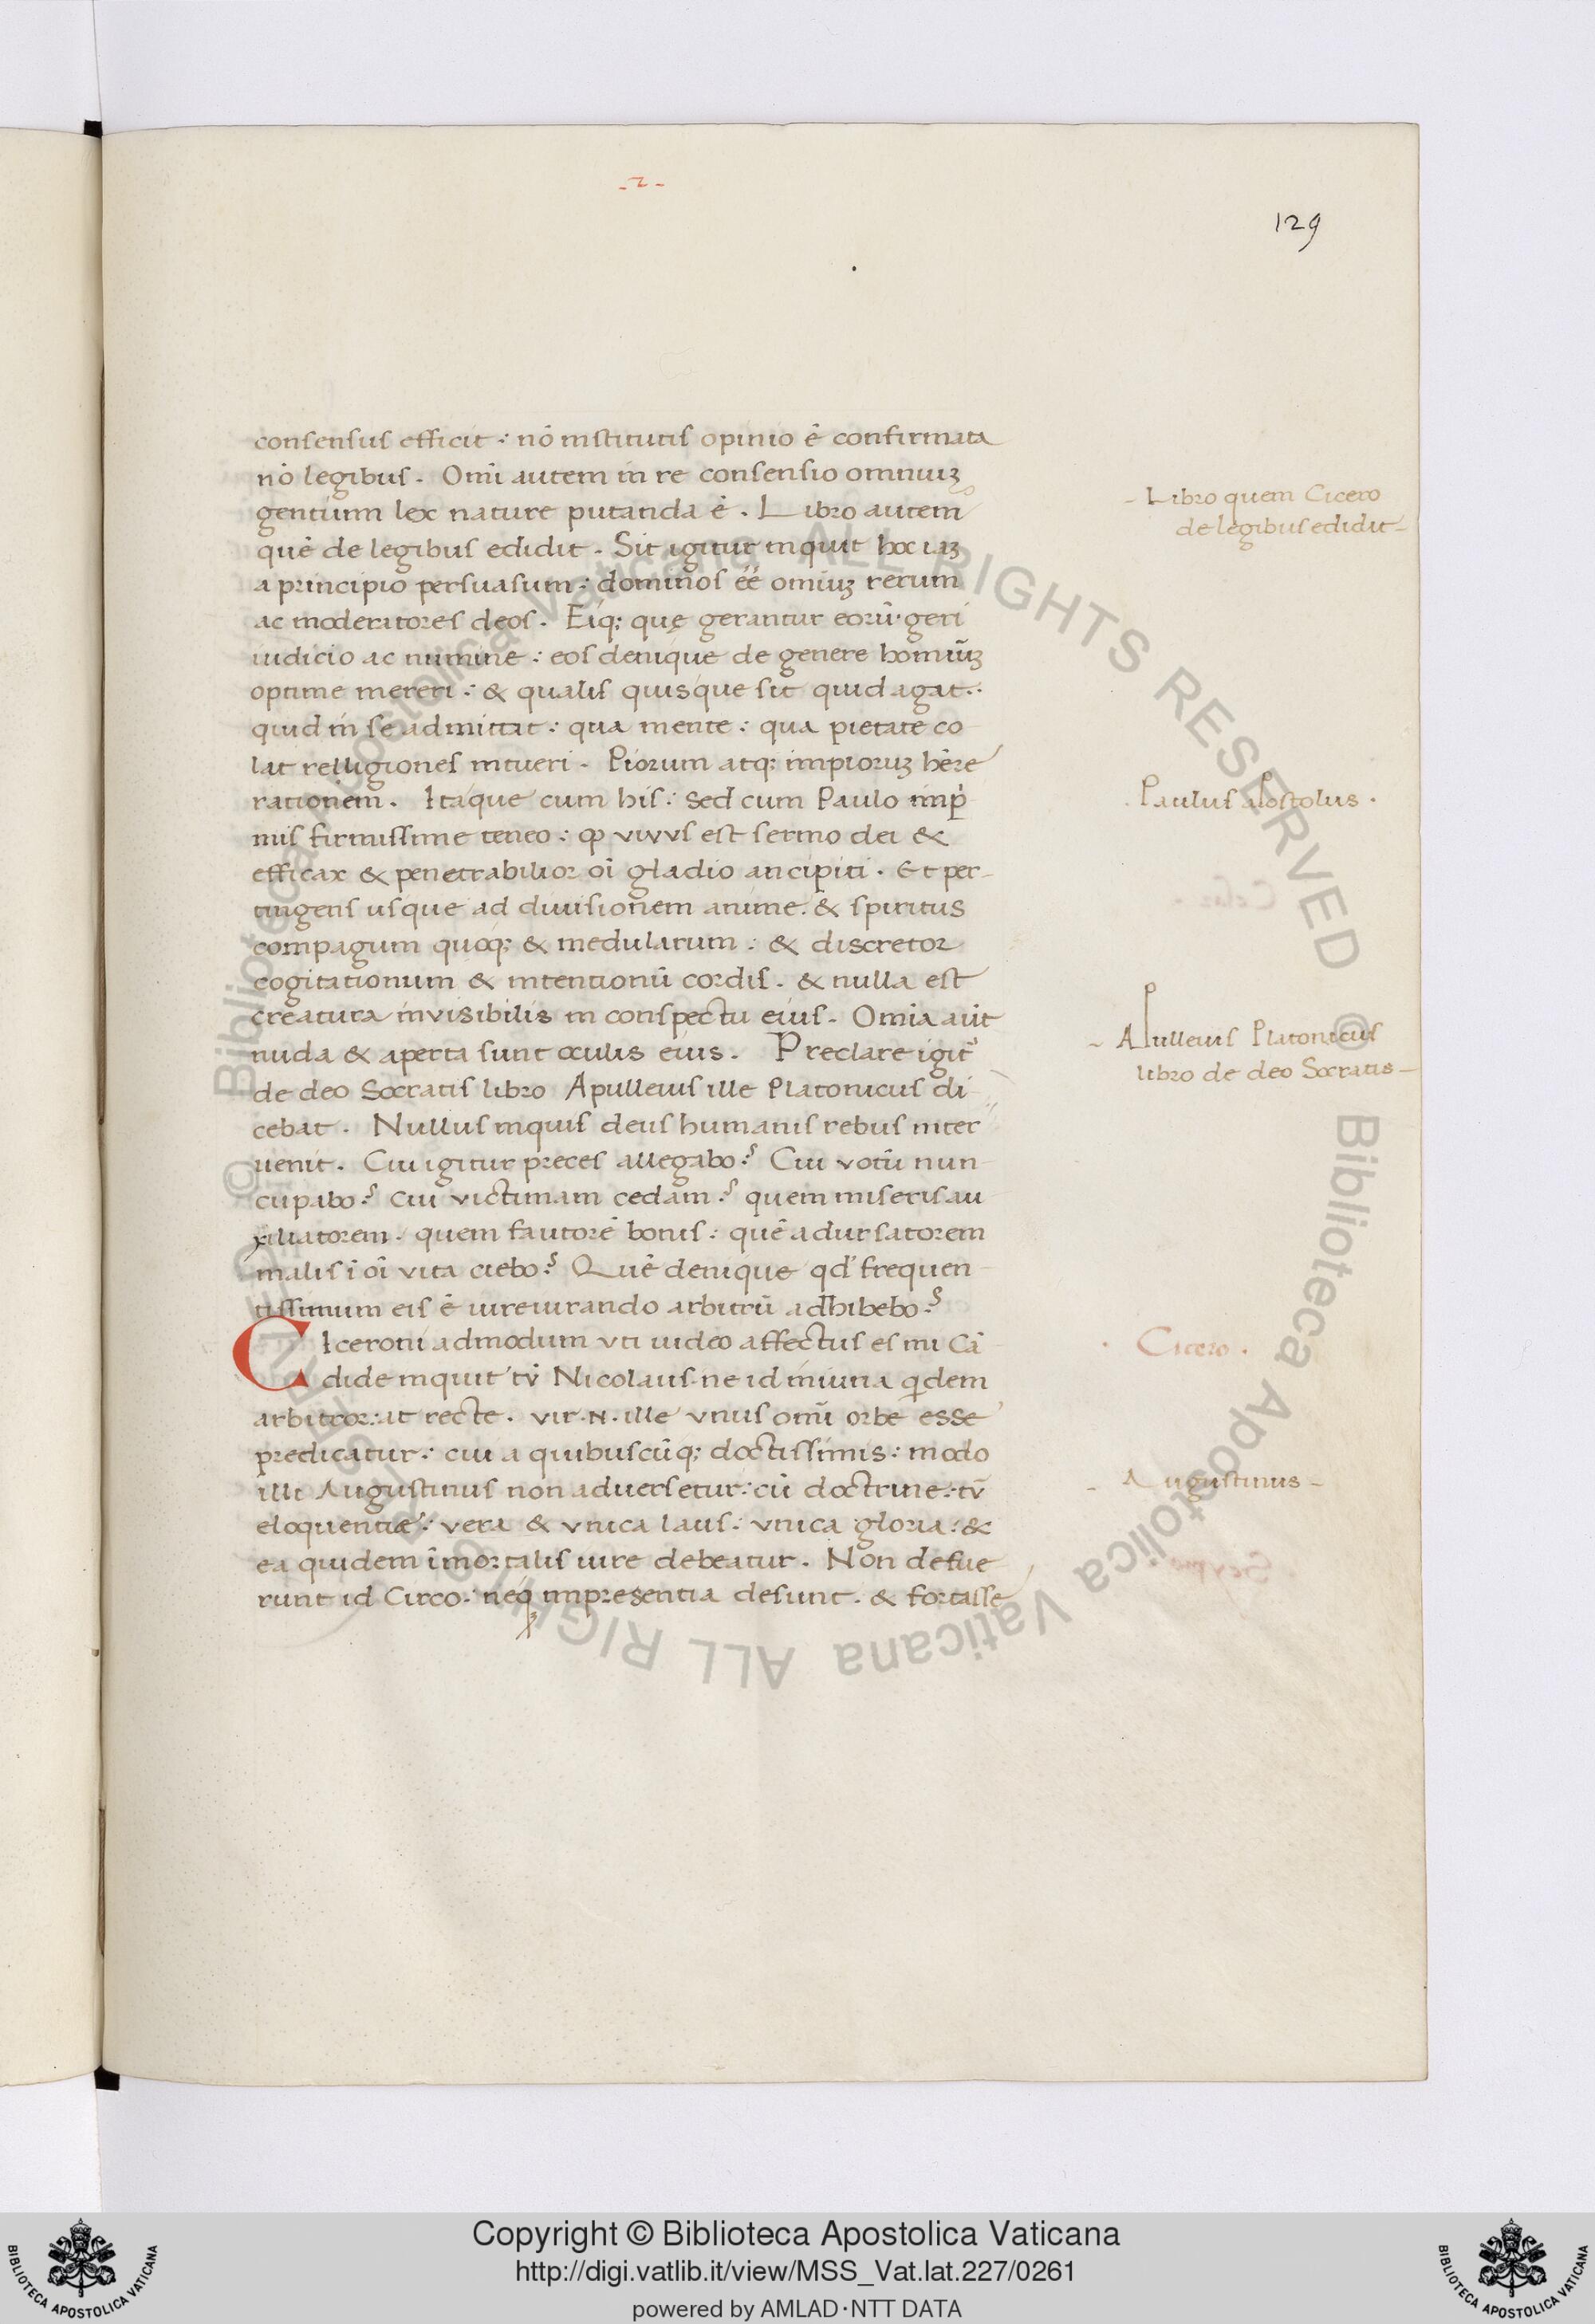 -2-
129
consensus efficit : nō institutis opinio ē confirmata
nō legibus . Omī autem in re consensio omniuꝫ
gentium lex nature putanda ē . Libro autem
quē de legibus edidit . Sit igitur inquit hoc iaꝫ
a principio persuasum : dominos eē omīuꝫ rerum
ac moderatores deos . Eíqꝫ que gerantur eorū geri
iudicio ac numine : eos denique de genere hominūꝫ
optime mereri : & qualis quisque sit quid agat :
quid in se admittat : qua mente : qua pietate co
lat relligiones intueri . Piorum atqꝫ impioruꝫ hēre
rationem . Itaque cum his : sed cum Paulo imp̄
mis firmissime teneo : ꝙ vivvs est sermo dei &
efficax & penetrabilior oī gladio ancipiti . Et per-
tingens usque ad diuisionem anime . & spiritus
compagum quoqꝫ & medularum : & discretor
cogitationum & intentionū cordis . & nulla est
creatura invisibilis in conspectu eius . Omīa aūt
nuda & aperta sunt oculis eius . Preclare igit᷑
de deo Socratis libro Apulleius ille Platonicus di-
cebat . Nullus inquis deus humanis rebus inter
uenit . Cui igitur preces allegabo ? Cui votū nun-
cupabo ? cui victimam cedam ? quem miseris au
xiliatorem . quem fautorē bonis : quē adursatorem
malis ī oī vita ciebo ? Quē denique qd' frequen-
tissimum eis ē iureiurando arbitrū adhibebo ?
Ciceroni admodum vti uideo affectus es mi Cā-
dide inquit tv̄ Nicolaus . ne id iniuria qͥdem
arbitror : at recte . vir . N . ille vnus omī orbe esse
predicatur : cui a quibuscūqꝫ doctissimis : modo
illi Augustinus non aduersetur : cū doctrine : tv̄
eloquentiae : vera & vnica laus : vnica gloria : &
ea quidem īmortalis iure debeatur . Non defue-
runt id circo : neqꝫ impresentia desunt . & fortasse
- Libro quem Cicero
de legibus edidit -
. Paulus apostolus .
- Apulleius Platonicus
libro de deo Socratis -
. Cicero .
- Augustinus -
© Biblioteca Apostolica Vaticana ALL RIGHTS RESERVED
© Biblioteca Apostolica Vaticana ALL RIGHTS RESERVED
Copyright © Biblioteca Apostolica Vaticana
http://digi.vatlib.it/view/MSS_Vat.lat.227/0261
powered by AMLAD·NTT DATA
BIBLIOTECA APOSTOLICA VATICANA
BIBLIOTECA APOSTOLICA VATICANA